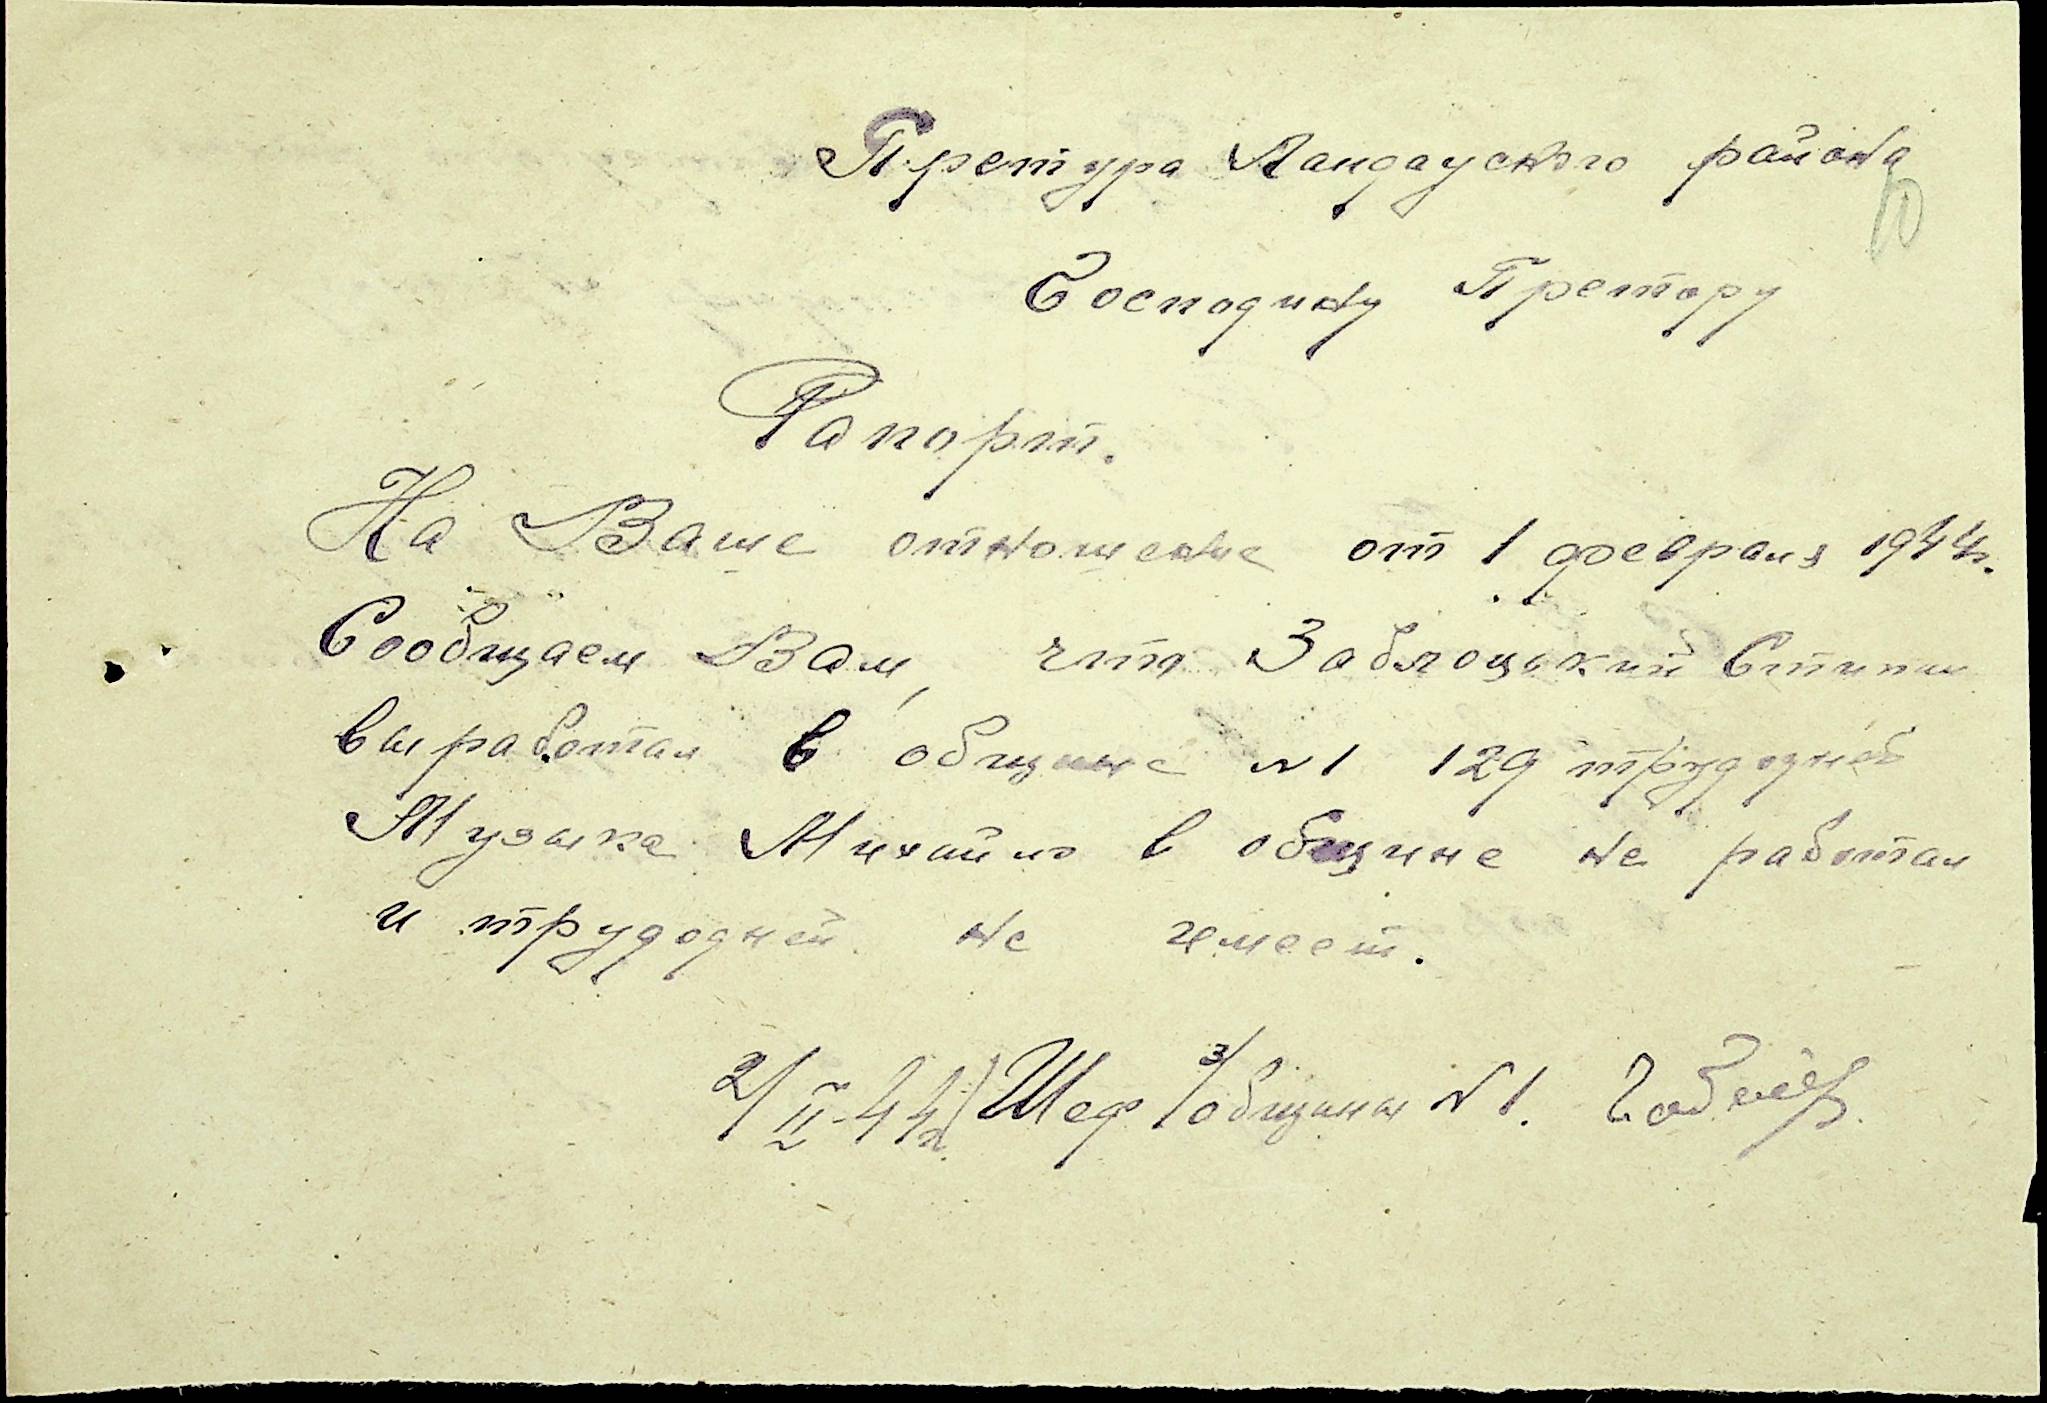 Претура Ландауского района
10
Господину Претору
Рапорт.
На Ваше отношение от 1 февраля 1944г.
Сообщаем Вам, что Заблоцький
выработал в общине №1 129 трудодней
Музыка Михайло в общине не работал
и трудодней не имеет.
2/II-44г. Шеф з/общины №1.